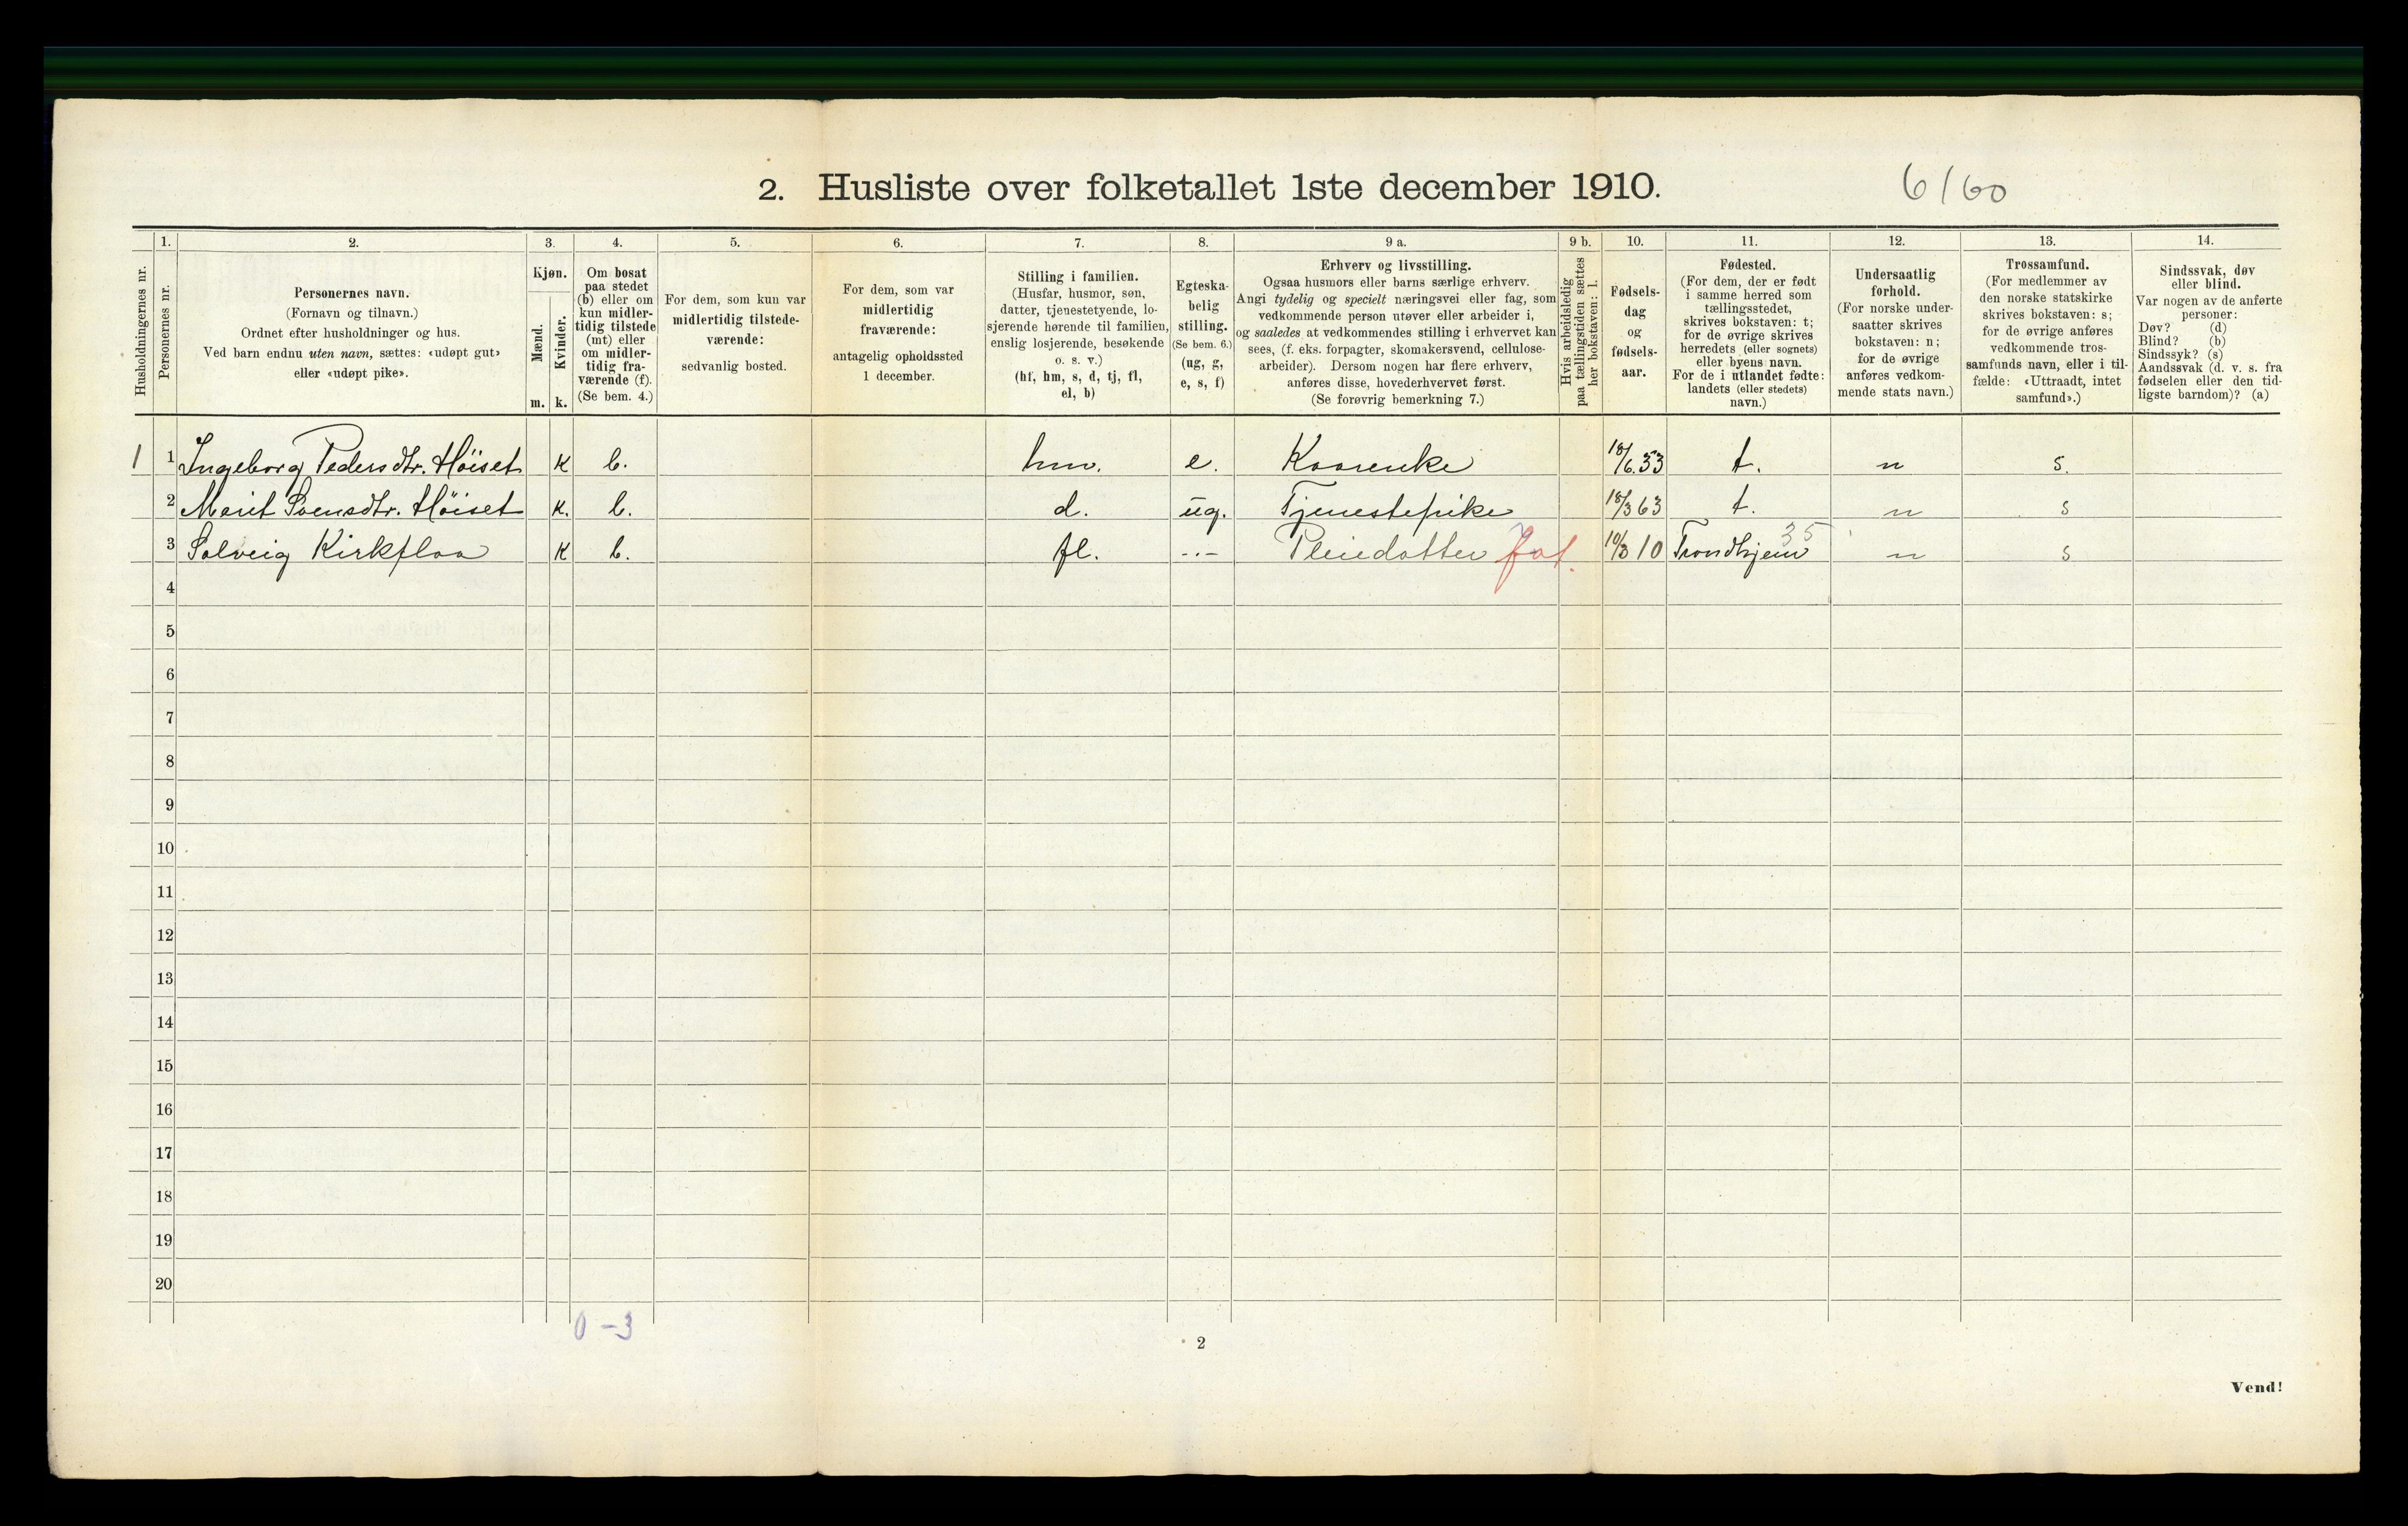 2. Husliste over folketallet 1ste december 1910.
6/60
1. 2. 3. 4. 5. 6. 7. 8. 9 a. 9 b. 10. 11. 12. 13. 14.
Husholdningernes nr.
Personernes nr.
Personernes navn.
(Fornavn og tilnavn.)
Ordnet efter husholdninger og hus.
Ved barn endnu uten navn, sættes: «udøpt gut»
eller «udøpt pike».
Kjøn.
Mænd.
Kvinder.
m. k.
Om bosat
paa stedet
(b) eller om
kun midler-
tidig tilstede
(mt) eller
om midler-
tidig fra-
værende (f).
(Se bem. 4.)
For dem, som kun var
midlertidig tilstede-
værende:
sedvanlig bosted.
For dem, som var
midlertidig
fraværende:
antagelig opholdssted
1 december.
Stilling i familien.
(Husfar, husmor, søn,
datter, tjenestetyende, lo-
sjerende hørende til familien,
enslig losjerende, besøkende
o. s. v.)
(hf, hm, s, d, tj, fl,
el, b)
Egteska-
belig
stilling.
(Se bem. 6.)
(ug, g,
e, s, f)
Erhverv og livsstilling.
Ogsaa husmors eller barns særlige erhverv.
Angi tydelig og specielt næringsvei eller fag, som
vedkommende person utøver eller arbeider i,
og saaledes at vedkommendes stilling i erhvervet kan
sees, (f. eks. forpagter, skomakersvend, cellulose-
arbeider). Dersom nogen har flere erhverv,
anføres disse, hovederhvervet først.
(Se forøvrig bemerkning 7.)
Hvis arbeidsledig
paa tællingstiden sættes
her bokstaven: l.
Fødsels-
dag
og
fødsels-
aar.
Fødested.
(For dem, der er født
i samme herred som
tællingsstedet,
skrives bokstaven: t;
for de øvrige skrives
herredets (eller sognets)
eller byens navn.
For de i utlandet fødte:
landets (eller stedets)
navn.)
Undersaatlig
forhold.
(For norske under-
saatter skrives
bokstaven: n;
for de øvrige
anføres vedkom-
mende stats navn.)
Trossamfund.
(For medlemmer av
den norske statskirke
skrives bokstaven: s;
for de øvrige anføres
vedkommende tros-
samfunds navn, eller i til-
fælde: «Uttraadt, intet
samfund».)
Sindssvak, døv
eller blind.
Var nogen av de anførte
personer:
Døv? (d)
Blind? (b)
Sindssyk? (s)
Aandssvak (d. v. s. fra
fødselen eller den tid-
ligste barndom)? (a)
1 1 Ingeborg Pedersdtr. Höiset K b. hm. e. Kaarenke 18/6.53 t. n s.
2 Marit Svensdtr. Höiset K. b. d. ug. Tjenestepike 18/3 63 t. n s
3 Solveig Kirkfloa K b. fl. -.- Pleiedatter 10/3 10 Trondhjem 35 n s
4
5
6
7
8
9
10
11
12
13
14
15
16
17
18
19
20
0 - 3
2
Vend!